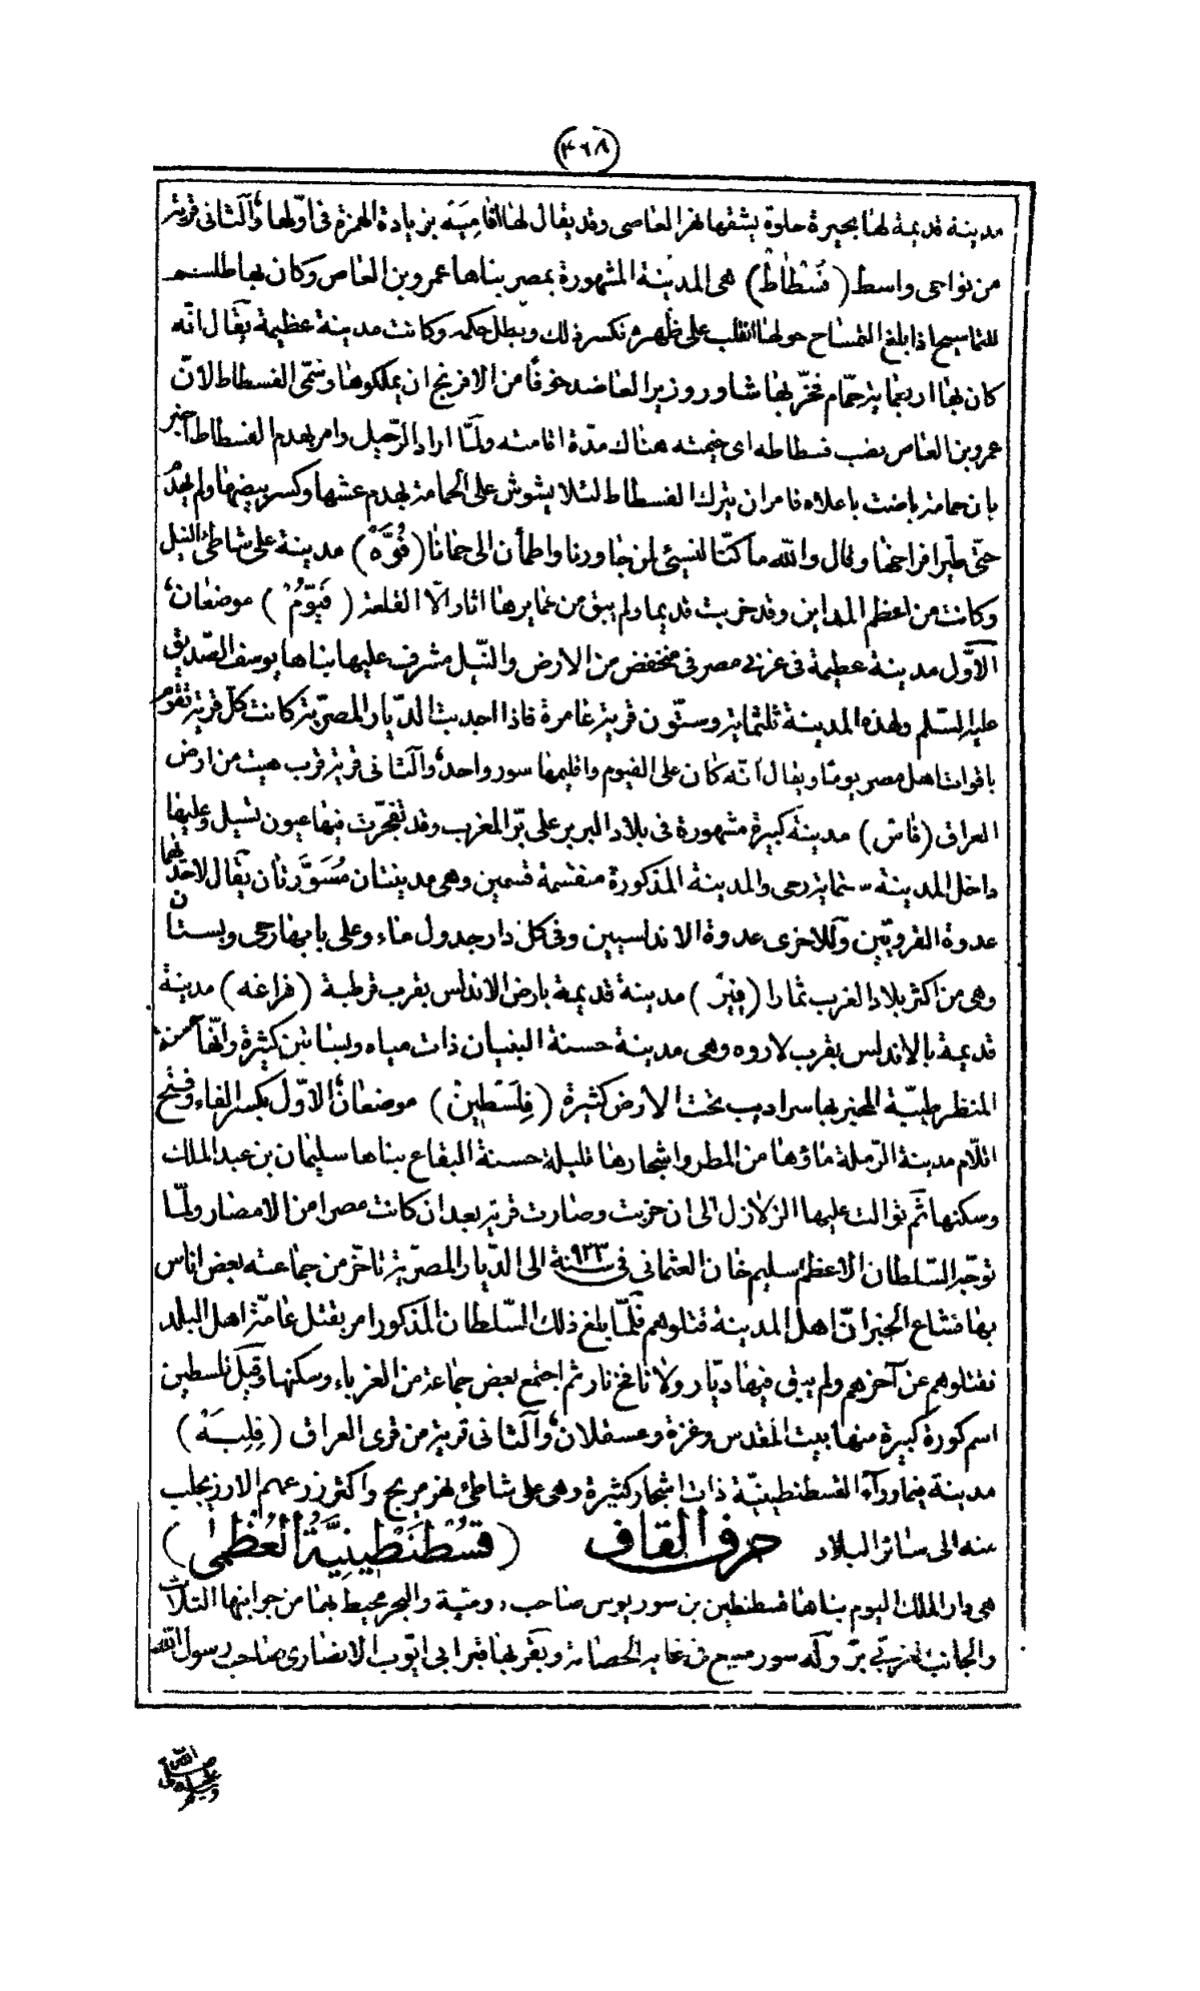 (٤٦٨)
مدينة قديمة لها بحيرة حلوة يشقها نهر العاصى وقد يقال لها افامية بزيادة الهمزة فى اولها والثانى قرية
من نواحى واسط (فسطاط) هى المدينة المشهورة بمصر بناها عمرو بن العاص وكان بها طلسم
للتماسيح اذا بلغ التمساح حولها انقلب على ظهره فكسر ذلك وبطل حكمه وكانت مدينة عظيمة يقال انه
كان بها اربعمائة حمّام فخرّبها شاور وزير العاضد خوفا من الافرنج ان يملكوها وسمّى الفسطاط لانّ
عمرو بن العاص نصب فسطاطه اى خيمته هناك مدّة اقامته ولمّا اراد الرّحيل وامر بهدم الفسطاط اخبر
بان حمامة باضت باعلاه فامر ان يترك الفسطاط لئلا يشوش على الحمامة بهدم عشها وكسر بيضها ولم يهدم
حتّى طيّر افراخها وقال والله ما كنّا لنسيئ لمن جاورنا واطمأن الى حمانا (فُوَّه) مدينة على شاطئ النيل
وكانت من اعظم المداين وقد خربت قديما ولم يبق من عمايرها اثار الّا القلعة (فَيّوُم) موضعان
الاوّل مدينة عظيمة فى غربى مصر فى منخفض من الارض والنّيل مشرف عليها بناها يوسف الصّديق
عليه السّلم ولهذه المدينة ثلثماية وستّون قرية عامرة فاذا اجدبت الدّيار المصرية كانت كلّ قرية تقوم
باقوات اهل مصر يوما ويقال انّه كان على الفيوم واقليمها سور واحد والثانى قرية قرب هيت من ارض
العراق (فاس) مدينة كبيرة مشهورة فى بلاد البربر على برّ المغرب وقد تفجّرت فيها عيون تسيل وعليها
داخل المدينة ستماية رحى والمدينة المذكورة منقسمة قسمين وهى مدينتان مُسَوَّرتان يقال لاحدهما
عدوة القرويّين وللاخرى عدوة الاندلسيين وفى كل دار جدول ماء وعلى بابها رحى وبستان
وهى من اكثر بلاد الغرب ثمارا مدينة قديمة بارض الاندلس بقرب قرطبة (فراغه) مدينة
قديمة بالاندلس بقرب لاروه وهى مدينة حسنة البنيان ذات مياه وبساتين كثيرة وانّها حسنة
المنظر طيّبة المخبر بها سراديب تحت الارض كثيرة (فِلَسْطين) موضعان الاوّل بكسر الفاء وفتح
اللّام مدينة الرّملة ماؤها من المطر واشجارها قليلة حسنة البقاع بناها سليمان بن عبد الملك
وسكنها ثم توالت عليها الزلازل الى ان خربت وصارت قرية بعد ان كانت مصرا من الامصار ولمّا
توجّه السّلطان الاعظم سليم خان العثمانى فى سنة ٩٢٣ الى الدّيار المصرّية تاخّر من جماعته بعض اناس
بها فشاع الخبر انّ اهل المدينة قتلوهم فلمّا بلغ ذلك السّلطان المذكور امر بقتل عامّة اهل البلد
فقتلوهم عن آخرهم ولم يبق فيها ديّار ولا نافخ نار ثم اجتمع بعض جماعة من الغرباء وسكنها وقيل فلسطين
اسم كورة كبيرة منها بيت المقدس وغزة وعسقلان والثانى قرية من قرى العراق (فِلِبَه)
مدينة فيما ورآء القسطنطينيّة ذات اشجار كثيرة وهى على شاطئ نهر مريج واكثر زرعهم الارز يجلب
منه الى سائر البلاد حرف القاف (قسطنطينيّة العظمى)
هى دار الملك اليوم بناها قسطنطين بن سوريوس صاحب رومّية والبحر محيط بها من جوانبها الثلاث
والجانب الغربّى برّ وله سور منيع فى غاية الحصانة وبقربها قبر ابى ايّوب الانصارى صاحب رسول الله
صلى الله عليه وسلم